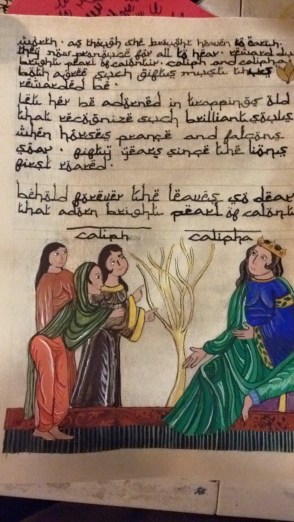 worth as though she brought heaven to earth.
they now pronounce for all to hear. reward du
bright pearl of calontir. caliph and calipha
both agree such giftes musth
rewarded be.
let her be adorned in trappings old
that recognize such brilliant souls
when horses prance and falcons
soar. fifty years since the lions
first roared.
behold forever the leaves so dear
that adorn bright pearl of calont
caliph calipha